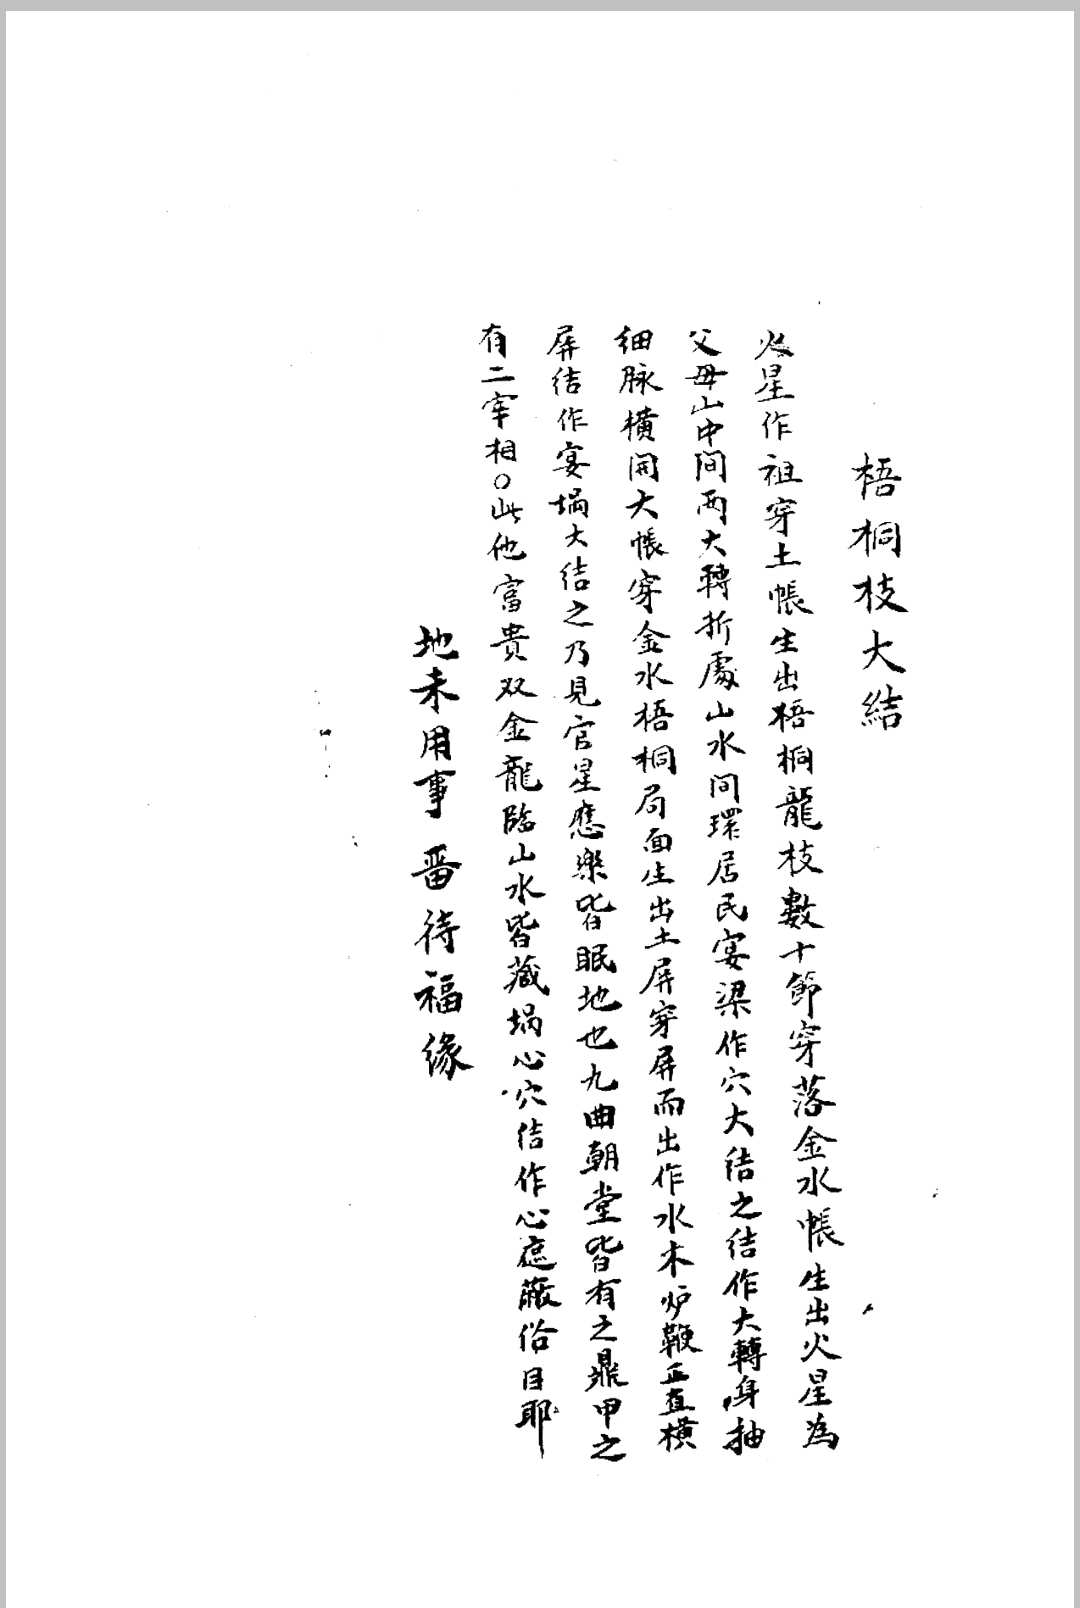 梧桐枝大結
火星作祖穿土帳生出梧桐龍枝數十節穿落金水帳生出火星為
父母山中间两大轉折處山水间環居民宴梁作穴大结之结作大轉身抽
细脉橫開大帳穿金水梧桐局面生出土屏穿屏而出作水木炉鞭正直橫
屏结作宴堝大结之乃見官星應樂皆眠地也九曲朝堂皆有之鼎甲之
有二宰相〇此他富贵双金龍臨山水皆藏堝心穴结作心遮蔽俗目耶
地未用事畱待福缘